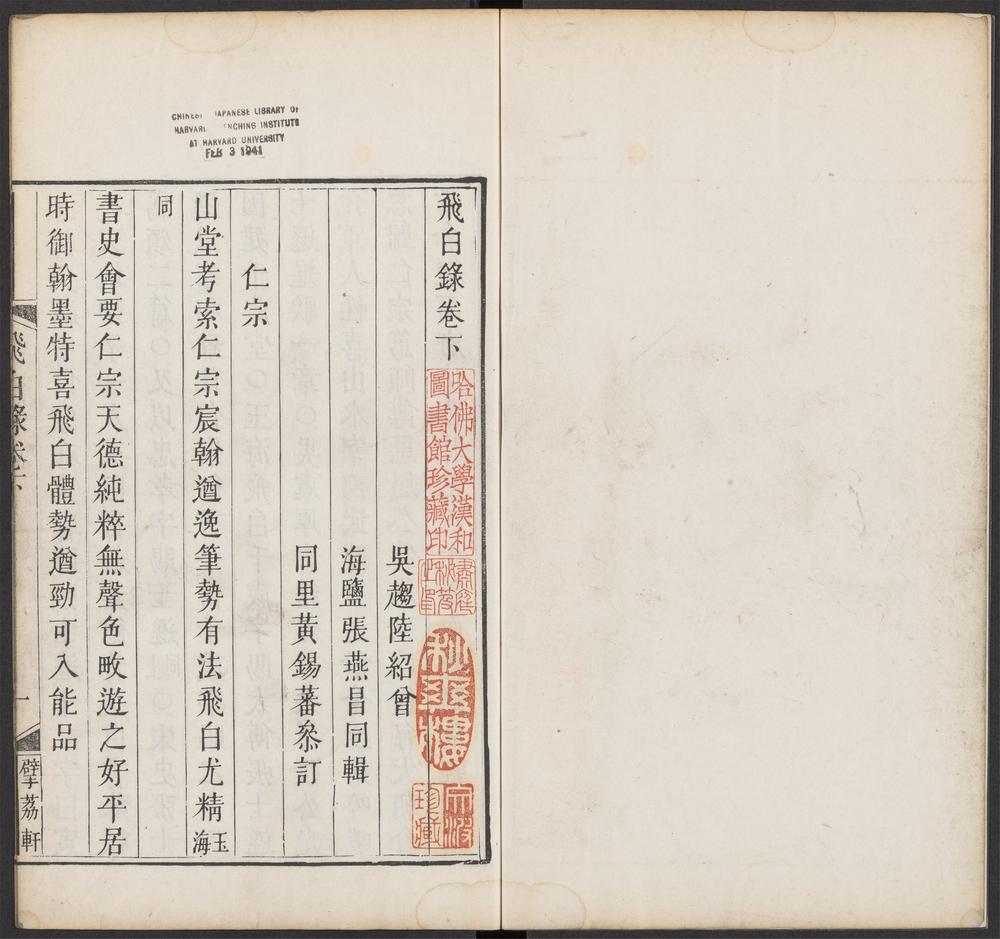 CHINESE JAPANESE LIBRARY OF
HARVARD YENCHING INSTITUTE
AT HARVARD UNIVERSITY
FEB 3 1941
飛白錄卷下
哈佛大學漢和
圖書館珍藏印
吳趨陸紹曾
海鹽張燕昌同輯
同里黃錫蕃叅訂
仁宗
山堂考索仁宗宸翰遒逸筆勢有法飛白尤精玉海
同
書史會要仁宗天德純粹無聲色畋遊之好平居
時御翰墨特喜飛白體勢遒勁可入能品
飛白錄卷下
一
擘荔軒